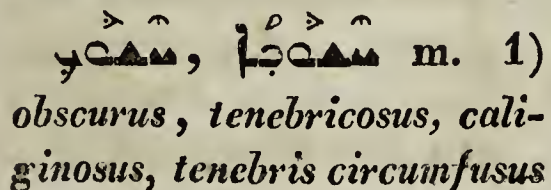 m. 1)
obscurus, tenebricosus, cali-
ginosus, tenebris circumfusus